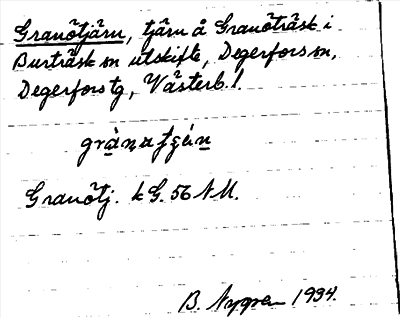 Granötjärn, tjärn å Granöträsk i
Burträsk sn utskifte, Degerfors sn,
Degerfors tg, Västerb. l.
gràṇatjẹ́ṇ
Granötj. k G. 56 NU.
B. Nygren 1934.